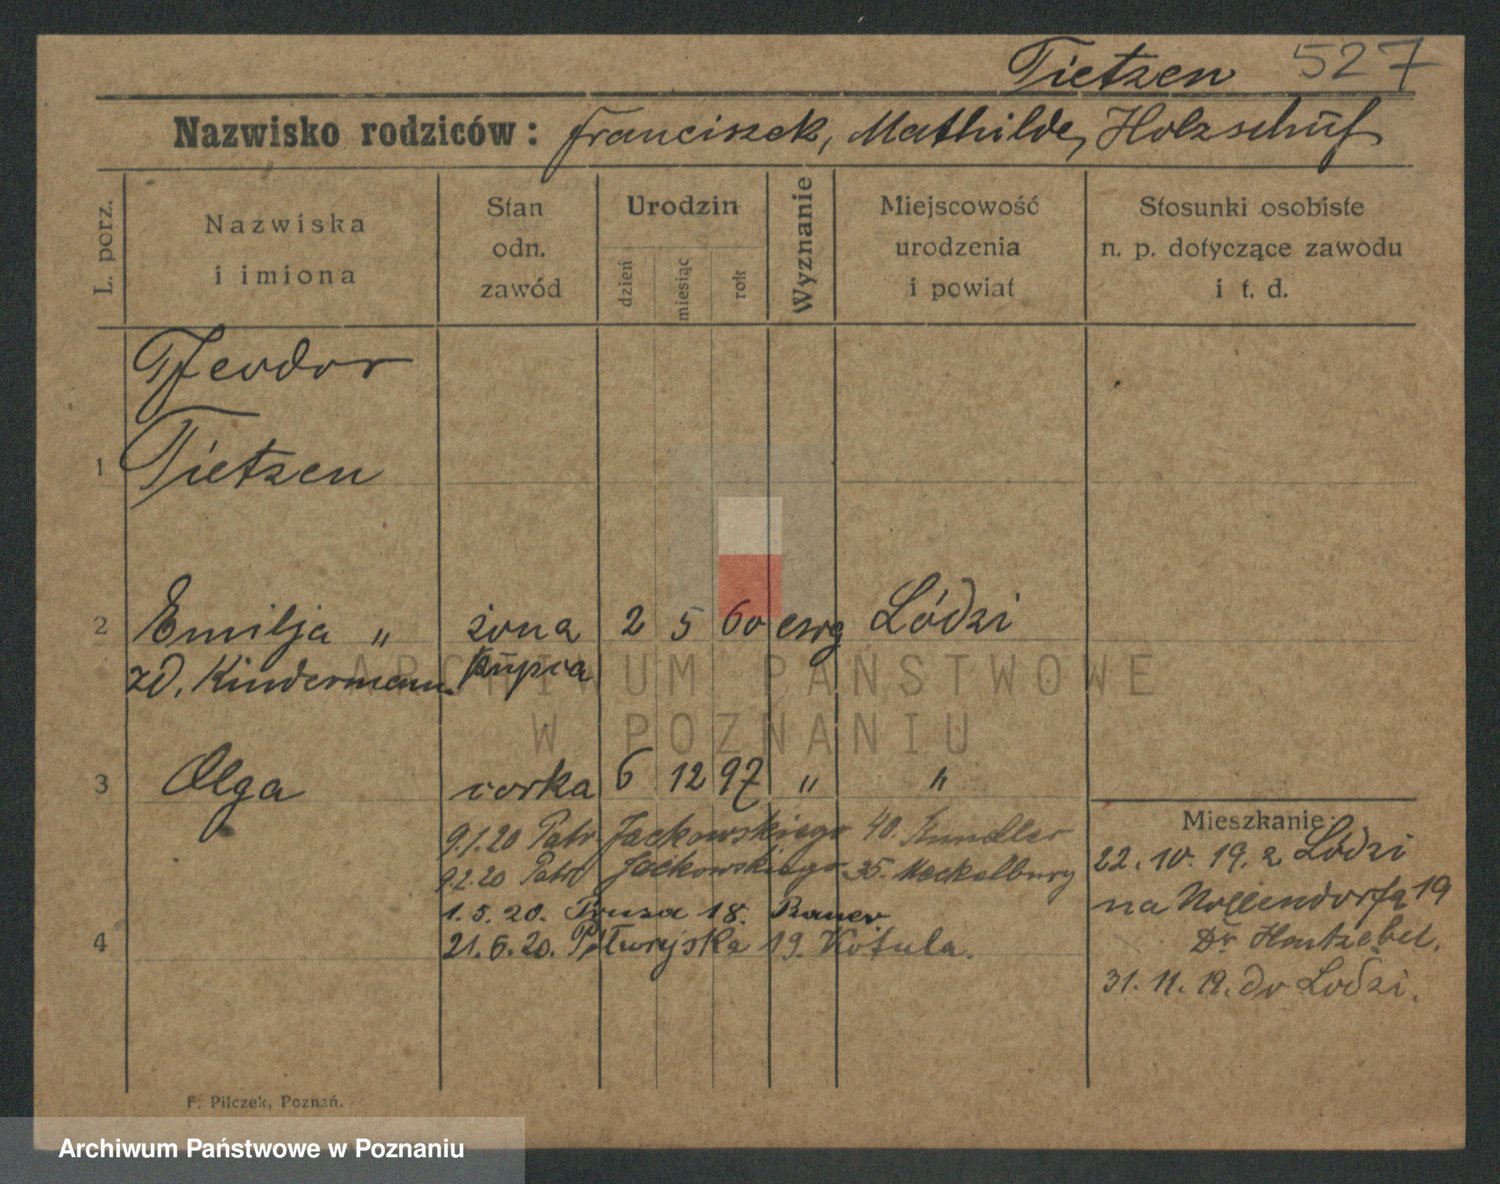 Tietzen 527
Nazwisko rodziców: Franciszek, Mathilde, Holzschuf
L. porz.
Nazwiska i imiona
Stan odn. zawód
Urodzin
dzień miesiąc rok
Wyznanie
Miejscowość urodzenia i powiat
Stosunki osobiste n. p. dotyczące zawodu i t. d.
Teodor
1 Tietzen
2 Emilja " żona 2 5 60 ewg Łódzi
zd. Kindermann kupca
3 Olga corka 6 12 97 " "
Mieszkanie:
9.1.20 Patr Jackowskiego 40.
9.2.20 Patr Jackowskiego 35. Meckelburg
1.5.20. Prusa 18. Bauer
4 21.6.20. Półwejska 19. Kotula.
22.10.19. z Łódzi
na Nollendorfa 19
Dr
31.11.19. do Łodzi.
F. Pilczek, Poznań.
ARCHIWUM PAŃSTWOWE
W POZNANIU
Archiwum Państwowe w Poznaniu